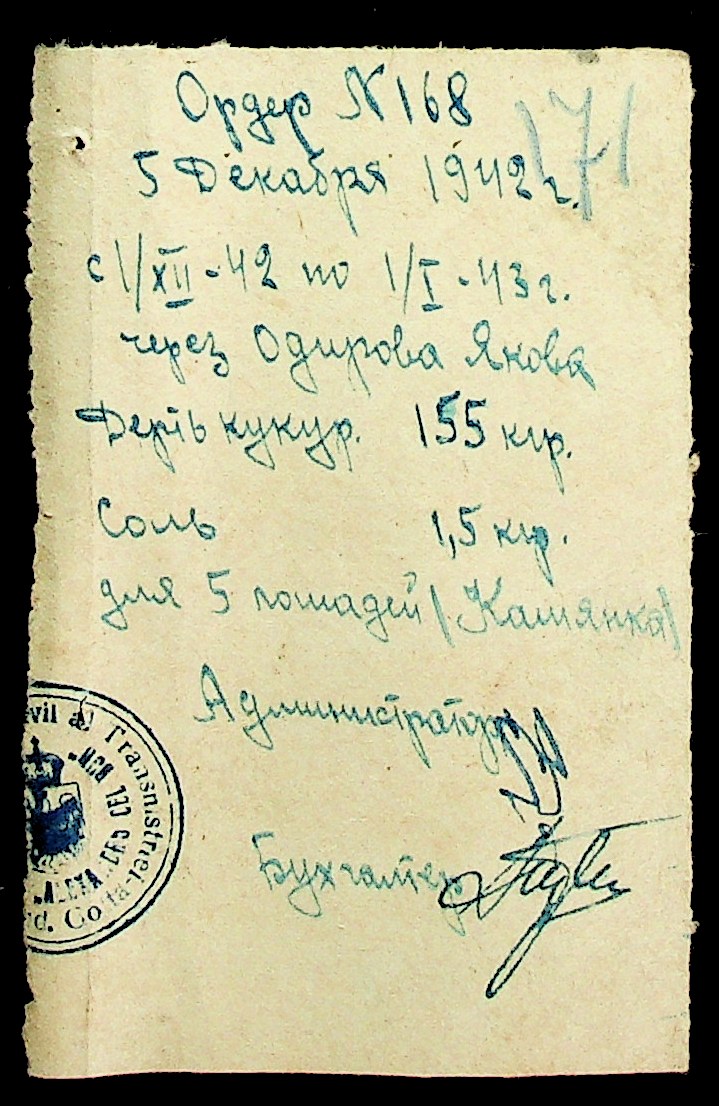 Ордер N 168
171
5 Декабря 1942 г.
с 1/XII - 42 по 1/I - 43 г.
через Одирова Якова
Дерть кукур. 155 кгр.
Соль 1,5 кгр.
для 5 лошадей / Камянка /
Администратор
Бухгалтер
vil al Transnistriei
d. Golta